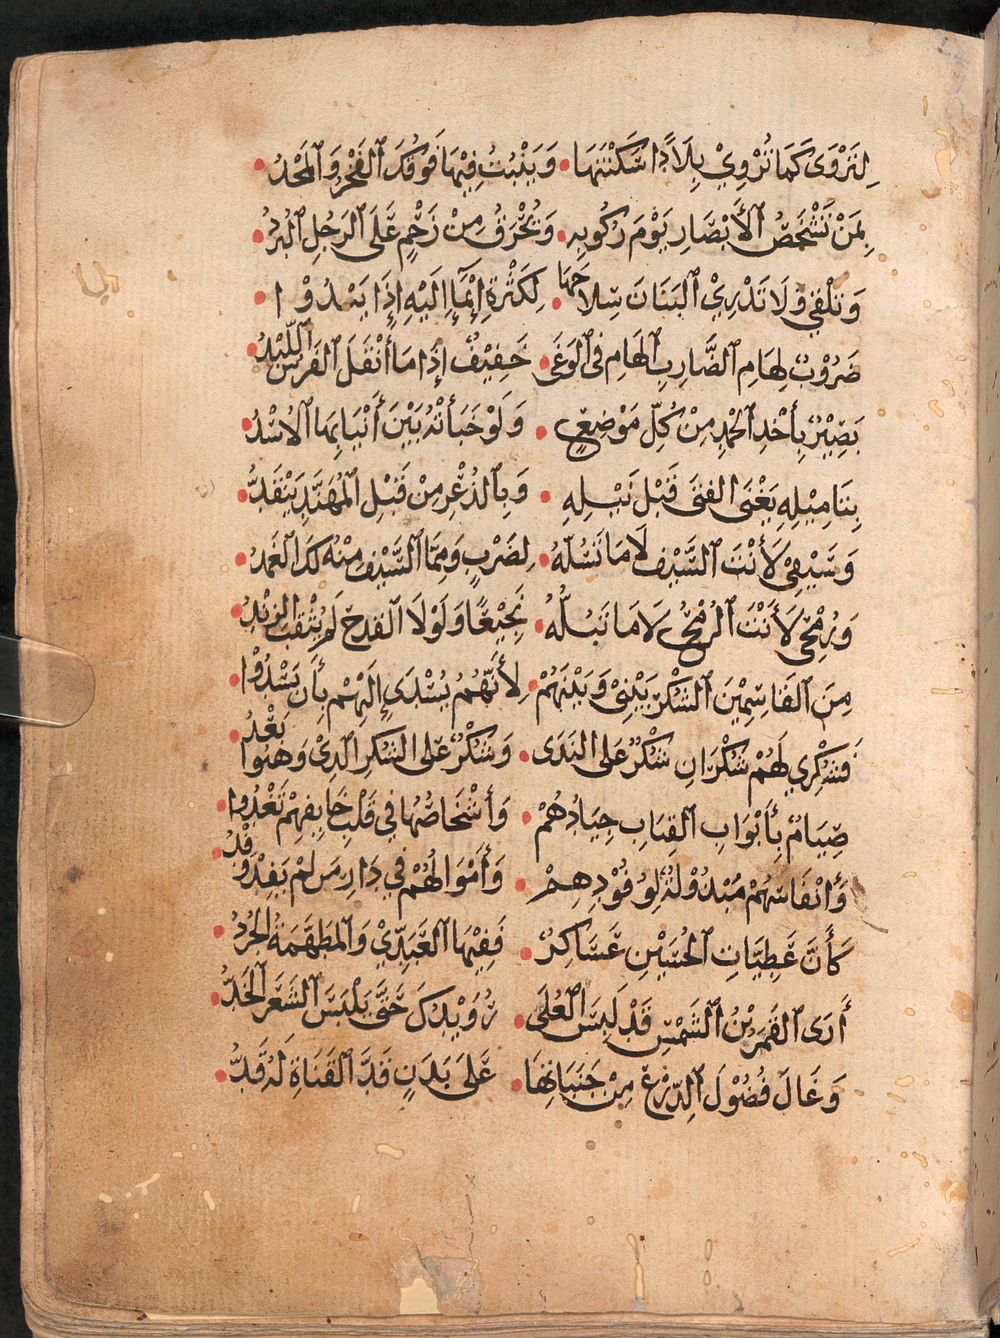 لِتَرْوَى كَمَا تُرْوِيْ بِلَادًا سَكَنْتَهَا • وَيَنْبُتُ فِيْهَا فَوْقَكَ الفَخْرُ وَالمَجْدُ •
بِمَنْ تَشْخَصُ الأَبْصَارِ يَوْمَ رُكُوبِهِ • وَيُخْرَقُ مِنْ زَحْمٍ عَلَى الرَجُلِ البُرْدُ •
وَتَلْقِي وَلَا تَدْرِيْ البَنَانَ سِلَاحَهَا • لِكَثْرَةِ إِيْمَآءٍ إِلَيْهِ إِذَا يَبْدُوْا •
ضَرُوْبٌ لِهَامِ الضَّارِبِ الهَامِ فِي الوَغَى خَفِيْفٌ إِذَا مَا أَثْقَلَ الفَرَسَ اللِّبْدُ •
بَصِيْرٌ بِأَخْذِ الحَمْدِ مِنْ كُلِّ مَوْضِعٍ • وَلَوْ خَبَأَتْهُ بَيْنَ أَنْيَابِهَا الأُسْدُ •
بِتَامِيْلِهِ يَغْنَى الفتَى قَبْلَ نَيْلِهِ • وَبِالذُعْرِ مِنْ قَبْلِ المُهَنَّدِ يَنْقَدُّ •
وَسَيْفِيْ لَأَنْتَ السَّيْفُ لَا مَا تَسُلُّهُ • لِضَرْبٍ وَمِمَّا السَّيْفُ مِنْهُ لَكَ الغمْدُ •
وَرُمْحِي لَأَنْتَ الرُمْحُ لَا مَا تَبُلُّهُ • نَجِيْعًا وَلَوْلَا القدحُ لَمْ يُثْقبِ الزنْدُ •
مِنَ القَاسِمِيْنَ الشُكْرَ بَيْنِيْ وَبَيْنَهُمْ • لِأَنَّهُمُ يُسْدَى إِلَيْهِمْ بِأَن يَسْدُوْا •
فَشُكْرِي لَهُمْ شُكْرَانِ شُكْرٌ عَلَى النَدَى • وَشُكْرٌ عَلَى الشُكرِ الَذِيْ وَهَبُوا بَعْدُ •
صِيَامٌ بِأَبْوَابِ القِبَابِ جِيَادُهُمْ • وَأَشْخَاصُهَا فِي قَلْبِ خَايفِهِمْ تَعْدُوا •
وَأَنْفَاسُهُمْ مَبْذُوْلَةٌ لِوُفُوْدِهِمْ • وَأَمْوَالُهُمْ فِي دَارِ مَن لَمْ يَفِدْ وَفْدُ •
كَأَنَّ عَطِيَّاتِ الحُسَيْنِ عَسَاكِرٌ • فَفِيْهَا العَبِدَّيْ وَالمطَهَّمَةُ الجُرْدُ •
أَرَى القَمَرَ بْنَ الشَمْسِ قَدْ لَبِسَ العُلَى • رُوَيْدَكَ حَتَّى يَلْبَسَ الشَعَرَ الخَدُّ •
وَغَالَ فُضُوْلَ الدِّرْعَ مِنْ جَنَبَاتِهَا • عَلَى بَدَنٍ قَدَّ القَنَاةِ لَهُ قَدُّ •